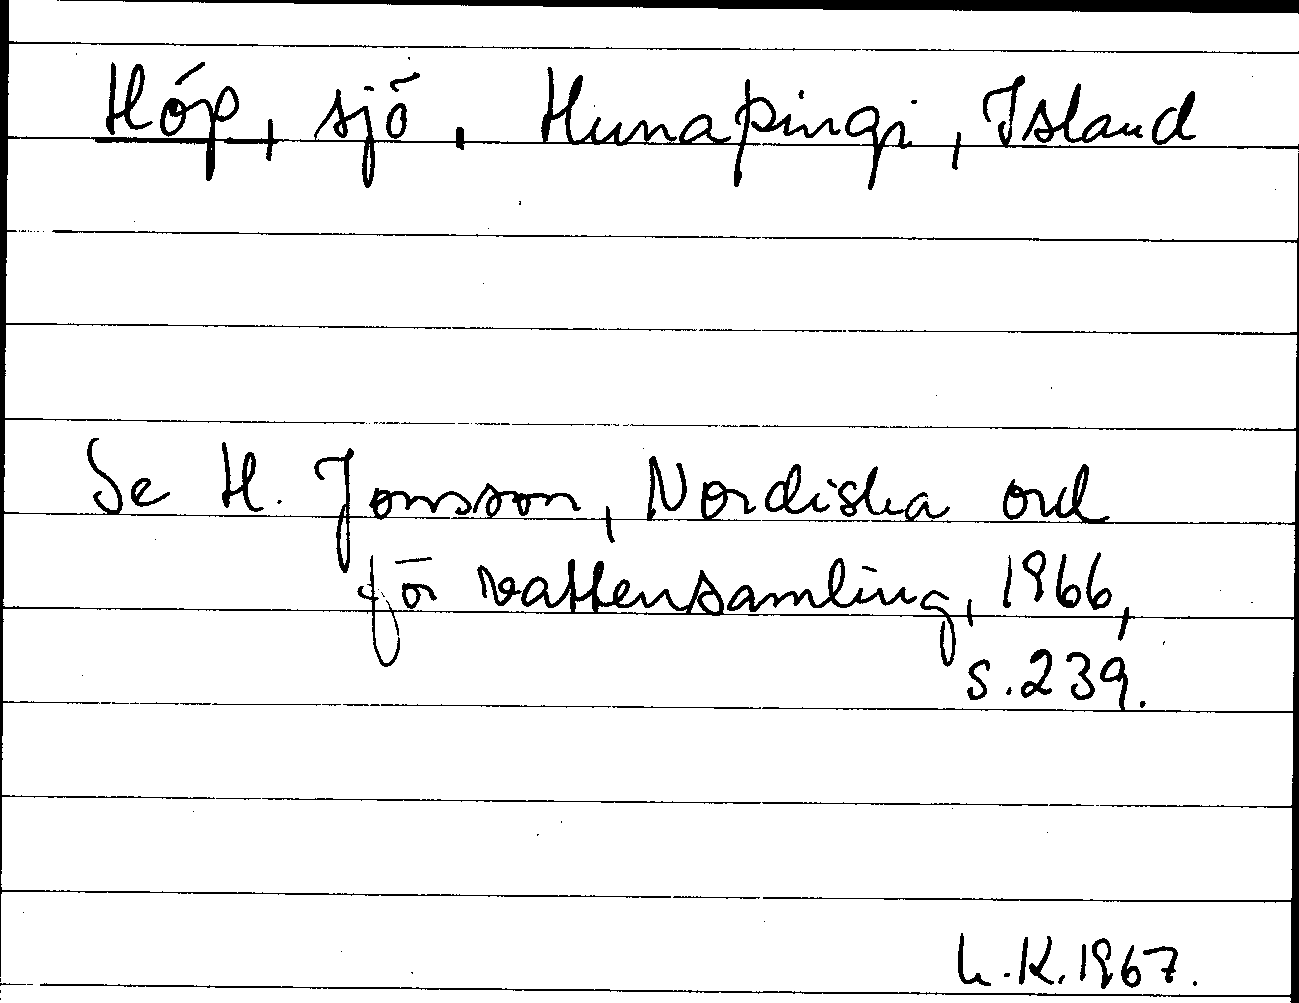 Hóp, sjö, Hunaþingi, Island
Se H. Jonsson, Nordiska ord
för vattensamling, 1966,
s. 239.
L.K. 1967.